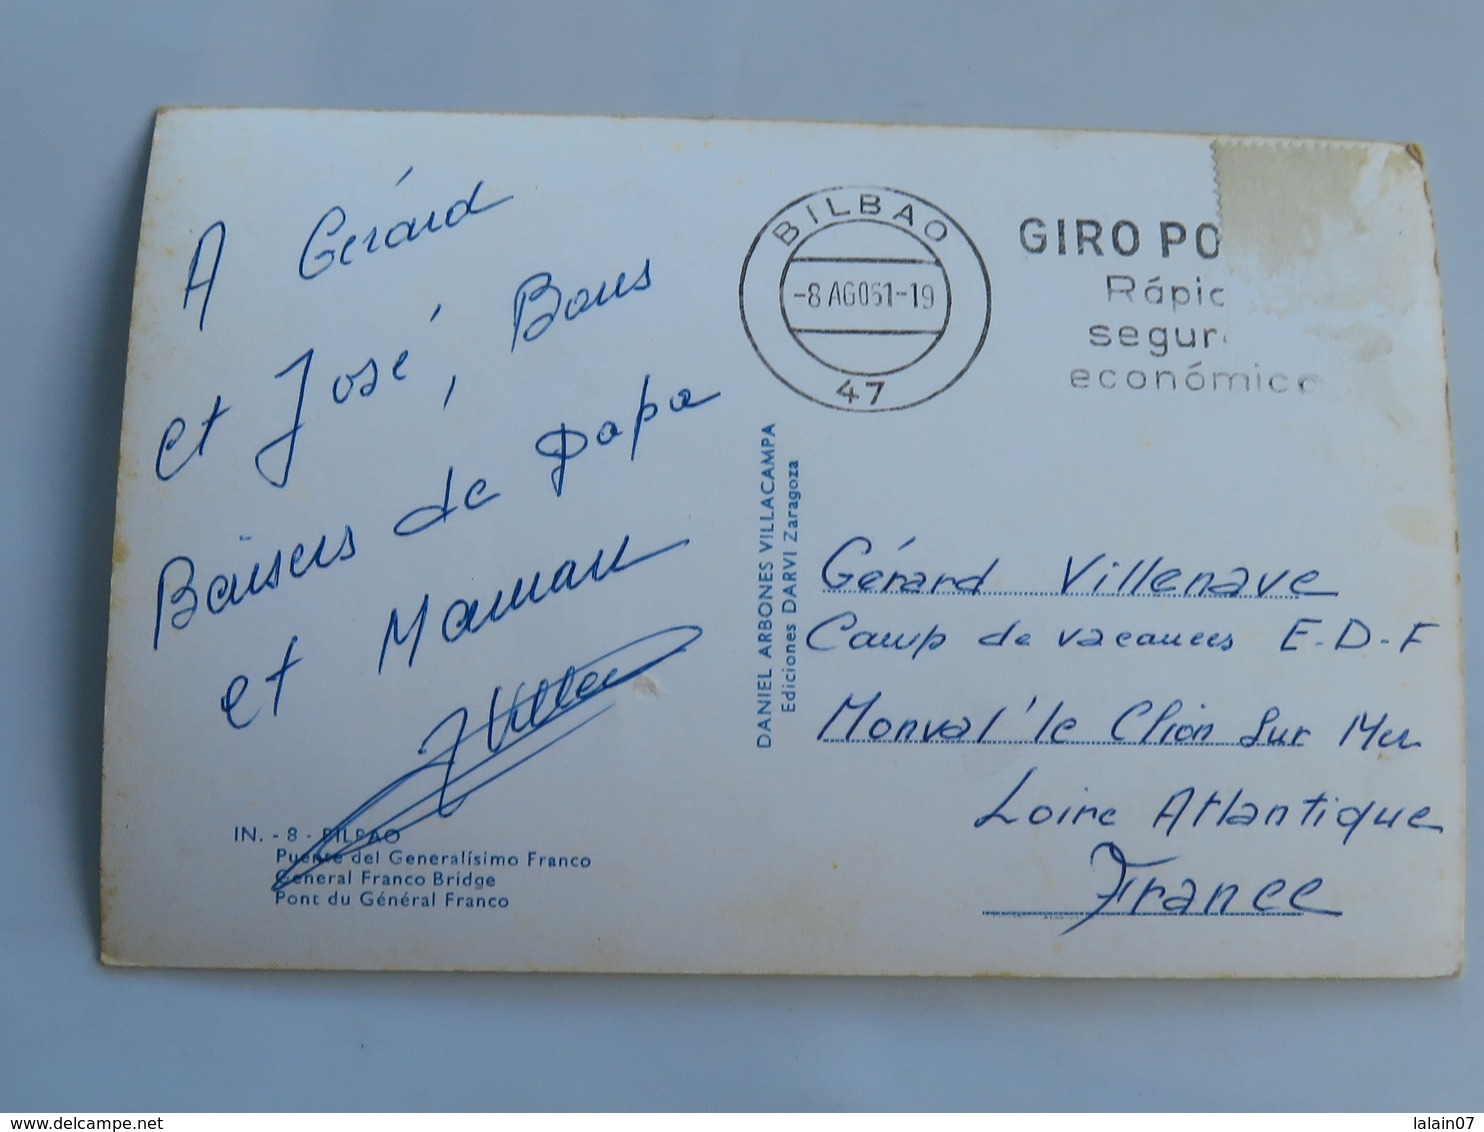 A Gérard
et José, Bons
Baisers de papa
et Maman
IN. - 8 - BILBAO
Puente del Generalísimo Franco
General Franco Bridge
Pont du Général Franco
DANIEL ARBONES VILLACAMPA
Ediciones DARVI Zaragoza
BILBAO
-8 AGO61-19
47
GIRO PO
Rápid
segur
económico
Gérard Villenave
Camp de vacances E-D-F
Monval' le Clion Sur Mer
Loire Atlantique
France
delcampe.net
lalain07